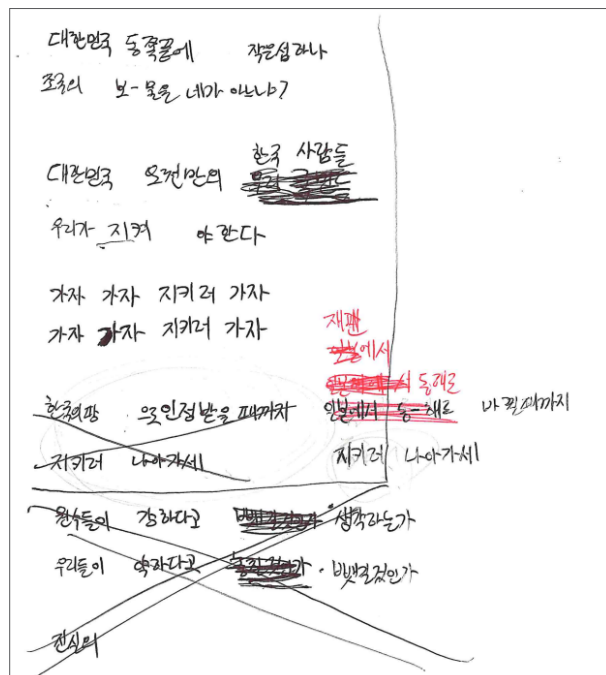 대한민국 동쪽끝에 작은섬하나
조국의 보-물을 네가 아느냐?
한국 사람들
대한민국 오천만의 우리
우리가 지켜 야 한다
가자 가자 지키러 가자
가자 가자 지키러 가자
재팬
일본에서
동해로
한국의땅 으로인정받을때까지 일본에서 동-해로 바뀔때까지
지키러 나아가세 지키러 나아가세
원수들이 강하다고 생각하는가
우리들이 약하다고 · 빼앗길것인가
진실의